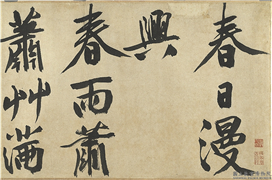 春日漫
興
春雨蕭
蕭艸滿